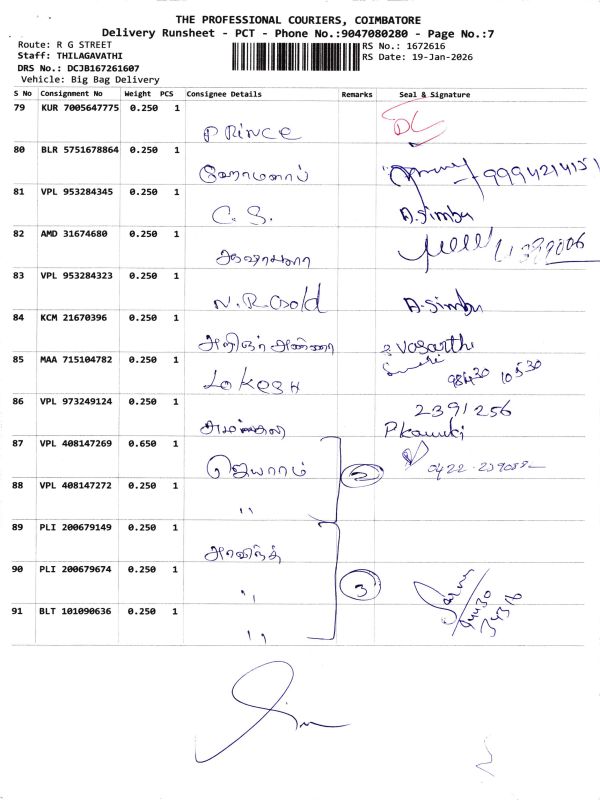 THE PROFESSIONAL COURIERS, COIMBATORE
Delivery Runsheet - PCT - Phone No.:9047080280 - Page No.:7
Route: R G STREET
Staff: THILAGAVATHI
DRS No.: DCJB167261607
Vehicle: Big Bag Delivery
RS No.: 1672616
RS Date: 19-Jan-2026
S No Consignment No Weight PCS Consignee Details Remarks Seal & Signature
79 KUR 7005647775 0.250 1
PRINCE DC
80 BLR 5751678864 0.250 1
9994214151
81 VPL 953284345 0.250 1
C. S. A.Simbu
82 AMD 31674680 0.250 1
83 VPL 953284323 0.250 1
N.R Gold A.Simbu
84 KCM 21670396 0.250 1
அறிஞர் அண்ணா
85 MAA 715104782 0.250 1
LOKESH 98430 10530
86 VPL 973249124 0.250 1
2391256
87 VPL 408147269 0.650 1
ஜெயராம் 2
88 VPL 408147272 0.250 1
"
89 PLI 200679149 0.250 1
அரவிந்த்
90 PLI 200679674 0.250 1
" 3
91 BLT 101090636 0.250 1
"